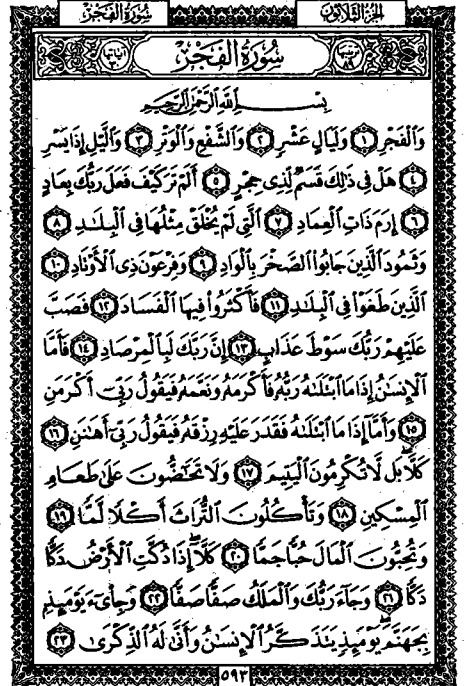 سُورَةُ الفَجْرِ الجُزْءُ الثَّلَاثُونَ
سُورَةُ الفَجْرِ
بِسْمِ اللَّهِ الرَّحْمَٰنِ الرَّحِيمِ
وَالْفَجْرِ ١ وَلَيَالٍ عَشْرٍ ٢ وَالشَّفْعِ وَالْوَتْرِ ٣ وَاللَّيْلِ إِذَا يَسْرِ
٤ هَلْ فِي ذَٰلِكَ قَسَمٌ لِّذِي حِجْرٍ ٥ أَلَمْ تَرَ كَيْفَ فَعَلَ رَبُّكَ بِعَادٍ
٦ إِرَمَ ذَاتِ الْعِمَادِ ٧ الَّتِي لَمْ يُخْلَقْ مِثْلُهَا فِي الْبِلَٰدِ ٨
وَثَمُودَ الَّذِينَ جَابُوا الصَّخْرَ بِالْوَادِ ٩ وَفِرْعَوْنَ ذِي الْأَوْتَادِ ١٠
الَّذِينَ طَغَوْا فِي الْبِلَٰدِ ١١ فَأَكْثَرُوا فِيهَا الْفَسَادَ ١٢ فَصَبَّ
عَلَيْهِمْ رَبُّكَ سَوْطَ عَذَابٍ ١٣ إِنَّ رَبَّكَ لَبِالْمِرْصَادِ ١٤ فَأَمَّا
الْإِنسَٰنُ إِذَا مَا ابْتَلَىٰهُ رَبُّهُ فَأَكْرَمَهُ وَنَعَّمَهُ فَيَقُولُ رَبِّي أَكْرَمَنِ
١٥ وَأَمَّا إِذَا مَا ابْتَلَىٰهُ فَقَدَرَ عَلَيْهِ رِزْقَهُ فَيَقُولُ رَبِّي أَهَٰنَنِ ١٦
كَلَّا بَل لَّا تُكْرِمُونَ الْيَتِيمَ ١٧ وَلَا تَحَٰضُّونَ عَلَىٰ طَعَامِ
الْمِسْكِينِ ١٨ وَتَأْكُلُونَ التُّرَاثَ أَكْلًا لَّمًّا ١٩
وَتُحِبُّونَ الْمَالَ حُبًّا جَمًّا ٢٠ كَلَّا إِذَا دُكَّتِ الْأَرْضُ دَكًّا
دَكًّا ٢١ وَجَاءَ رَبُّكَ وَالْمَلَكُ صَفًّا صَفًّا ٢٢ وَجِا۟يءَ يَوْمَئِذٍ
بِجَهَنَّمَ يَوْمَئِذٍ يَتَذَكَّرُ الْإِنسَٰنُ وَأَنَّىٰ لَهُ الذِّكْرَىٰ ٢٣
٥٩٣